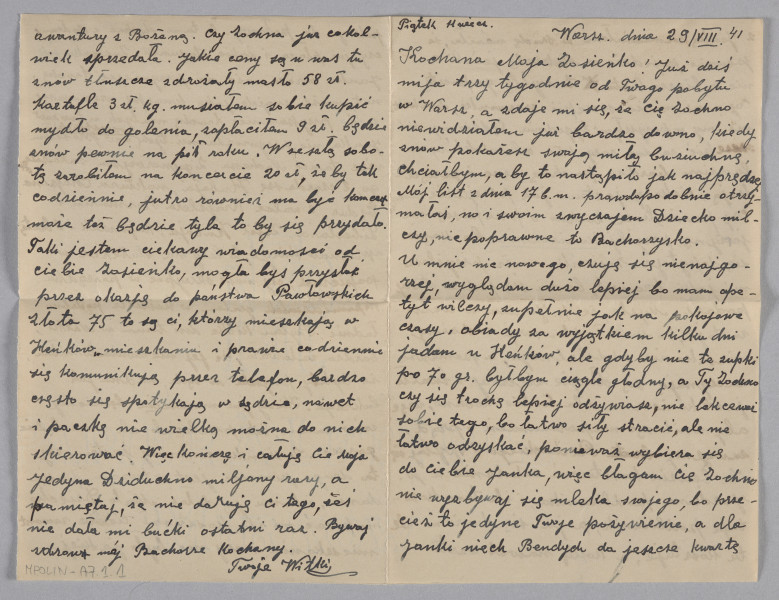 Piątek Wiecz.
Warsz. dnia 29/VIII. 41
Kochana Moja Zosieńko! Już dziś
mija trzy tygodnie od Twego pobytu
w Warsz, a zdaje mi się, że Cię Zochno
niewidziałem już bardzo dawno, kiedy
znów pokażesz swoją miłą buziuchnę,
chciałbym, aby to nastąpiło jak najprędzej
Mój list z dnia 17 b.m. prawdopodobnie otrzy-
małaś, no i swoim zwyczajem Dziecko mil-
czy, nie poprawne to Bachorzysko.
U mnie nic nowego, czuję się nienajgo-
rzej, wyglądam dużo lepiej bo mam ape-
tyt wilczy, zupełnie jak na pokojowe
czasy, obiady za wyjątkiem kilku dni
jadam u Heńków, ale gdyby nie te zupki
po 70 gr. byłbym ciągle głodny, a Ty Zochno
czy się trochę lepiej odżywiasz, nie lekceważ
sobie tego, bo łatwo siły stracić, ale nie
łatwo odzyskać, ponieważ wybiera się
do ciebie Janka, więc błagam Cię Zochno
nie wyzbywaj się mleka swojego, bo prze-
cież to jedyne Twoje pożywienie, a dla
Janki niech Bendych da jeszcze kwartę
awantury z Bożeną. Czy Zochna już cokol-
wiek sprzedała. Jakie ceny są u was tu
znów tłuszcze zdrożały masło 58 zł.
Kartofle 3 zł. kg. musiałem sobie kupić
mydło do golenia, zapłaciłem 9 zł. będzie
znów pewnie na pół roku. W zeszłą sobo-
tę zarobiłem na koncercie 20 zł, żeby tak
codziennie, jutro również ma być koncert
może też będzie tyle to by się przydało.
Taki jestem ciekawy wiadomości od
ciebie Zosieńko, mogła byś przysłać
przez okazję do państwa Pawłowskich
Złota 75 to są ci, którzy mieszkają w
Heńków mieszkaniu i prawie codziennie
się komunikują przez telefon, bardzo
często się spotykają w sądzie, nawet
i paczkę nie wielką można do nich
skierować. Więc kończę i całuję Cię moja
Jedyna Dziduchno miljony razy, a
pamiętaj, że nie daruję ci tego, żeś
nie dała mi bućki ostatni raz. Bywaj
zdrowa mój Bachorze Kochany.
Twoje
MPOLIN-A7.1.1